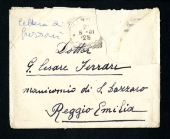 Lettera di
8-01
Dottor
G. Cesare Ferrari
manicomio di S. Lazzaro
Reggio Emilia